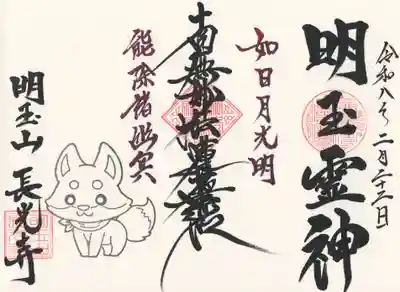 令和八年 二月二十二日
明玉霊神
如日月光明
南無妙法蓮華経
能除諸幽冥
明玉山 長光寺